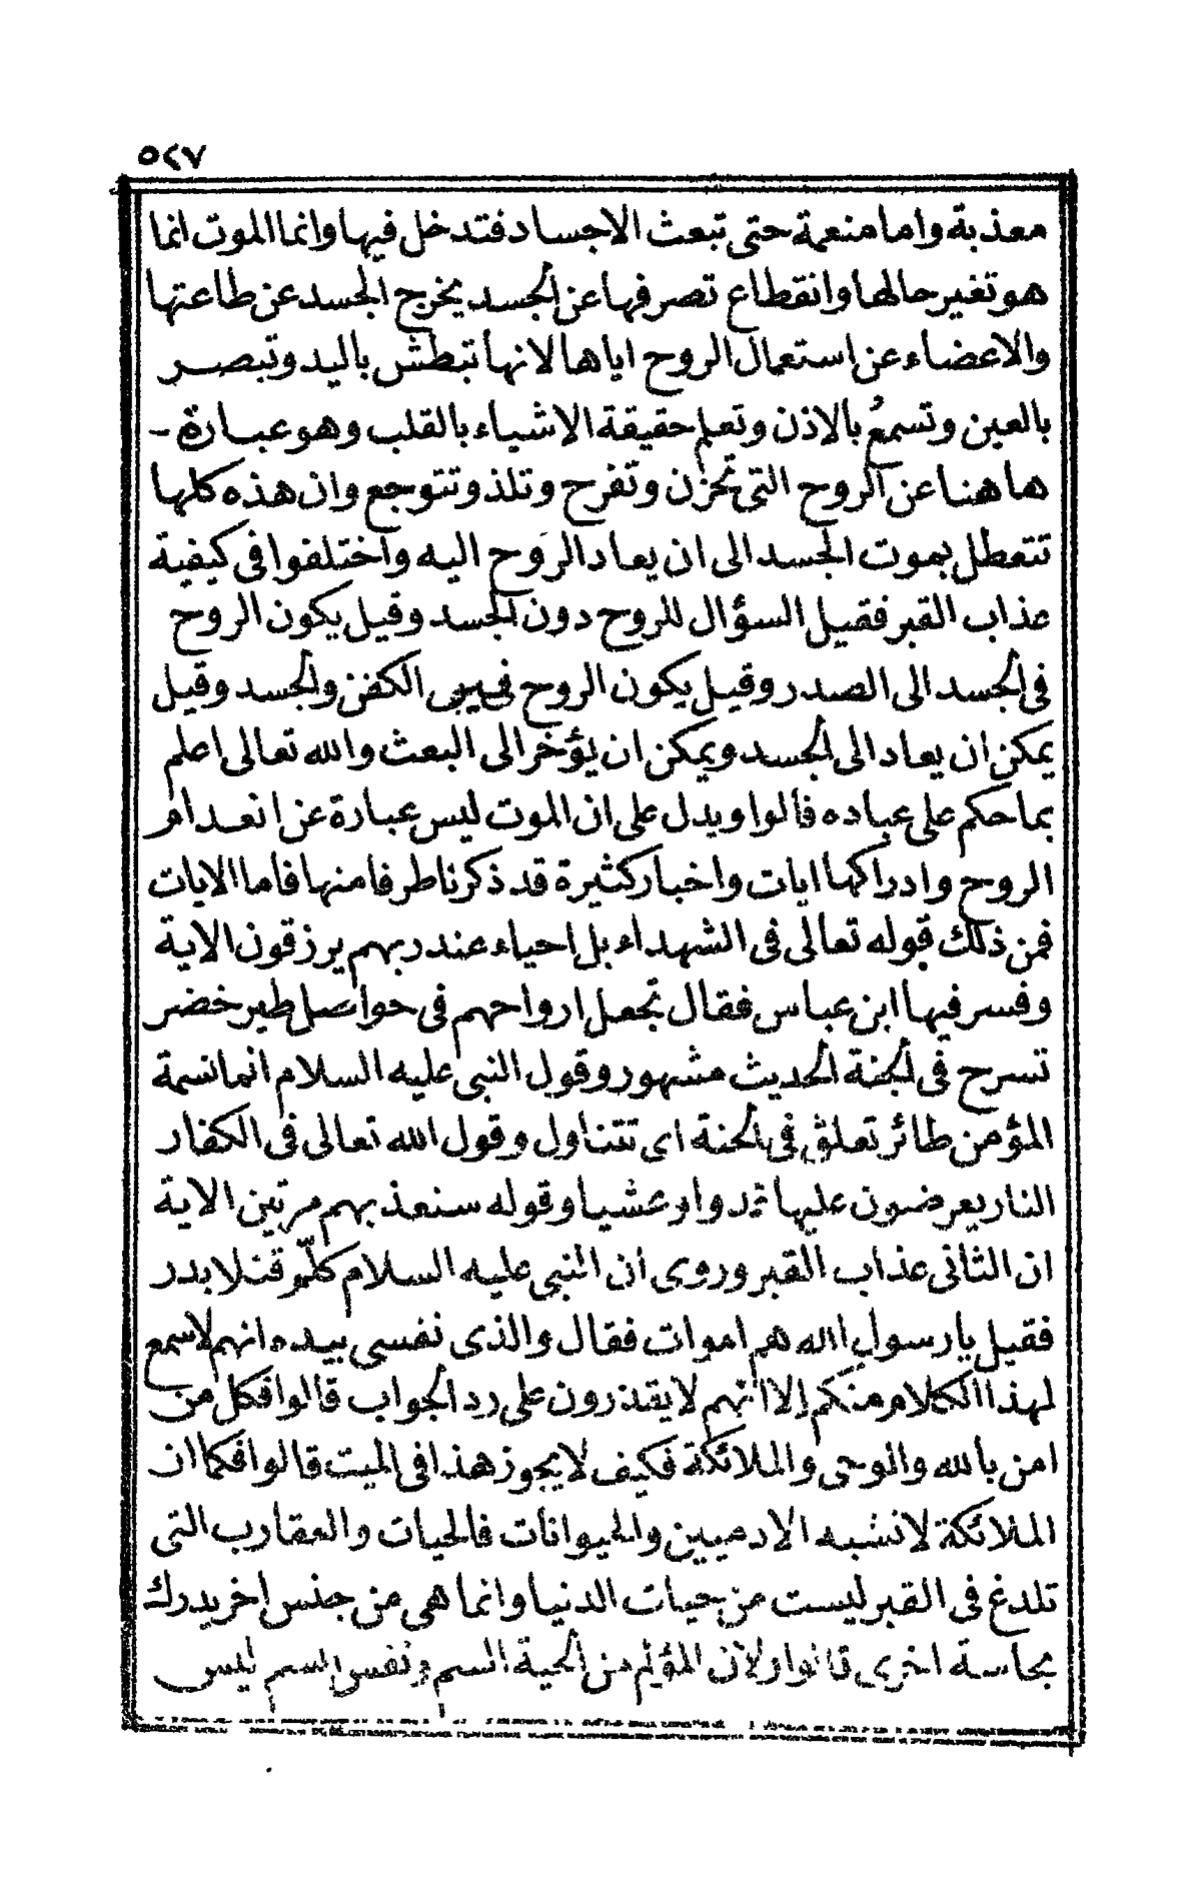 ٥٢٧
معذبة واما منعمة حتى تبعث الاجساد فتدخل فيها وانما الموت انما
هو تغير حالها وانقطاع تصرفها عن الجسد يخرج الجسد عن طاعتها
والاعضاء عن استعمال الروح اياها لانها تبطش باليد وتبصر
بالعين وتسمع بالاذن وتعلم حقيقة الاشياء بالقلب وهو عبارة -
ها هنا عن الروح التى تحزن وتفرح وتلذ وتتوجع وان هذه كلها
تتعطل بموت الجسد الى ان يعاد الروح اليه واختلفوا فى كيفية
عذاب القبر فقيل السؤال للروح دون الجسد وقيل يكون الروح
فى الجسد الى الصدر وقيل يكون الروح فى بين الكفن والجسد وقيل
يمكن ان يعاد الى الجسد ويمكن ان يؤخر الى البعث والله تعالى اعلم
بما حكم على عباده قالوا ويدل على ان الموت ليس عبارة عن انعدام
الروح وادراكها ايات واخبار كثيرة قد ذكرنا طرفا منها فاما الايات
فمن ذلك قوله تعالى فى الشهداء بل احياء عند ربهم يرزقون الاية
وفسر فيها ابن عباس فقال تجعل ارواحهم فى حواصل طير خضر
تسرح فى الجنة الحديث مشهور وقول النبى عليه السلام انما نسمة
المؤمن طائر تعلق فى الجنة اى تتناول وقول الله تعالى فى الكفار
النار يعرضون عليها غدوا وعشيا وقوله سنعذبهم مرتين الاية
ان الثانى عذاب القبر وروى ان النبى عليه السلام كلّم قتلا بدر
فقيل يا رسول الله هم اموات فقال والذى نفسى بيده انهم لاسمع
لهذا الكلام منكم إلا انهم لا يقدرون على رد الجواب قالوا فكل من
امن بالله والوحى والملائكة فكيف لا يجوز هذا فى الميت قالوا فكما ان
الملائكة لا تشبه الادميين والحيوانات فالحيات والعقارب التى
تلدغ فى القبر ليست من حيات الدنيا وانما هى من جنس اخر يدرك
بحاسة اخرى قالوا ولان المؤلم من الحية السم ونفس السم ليس